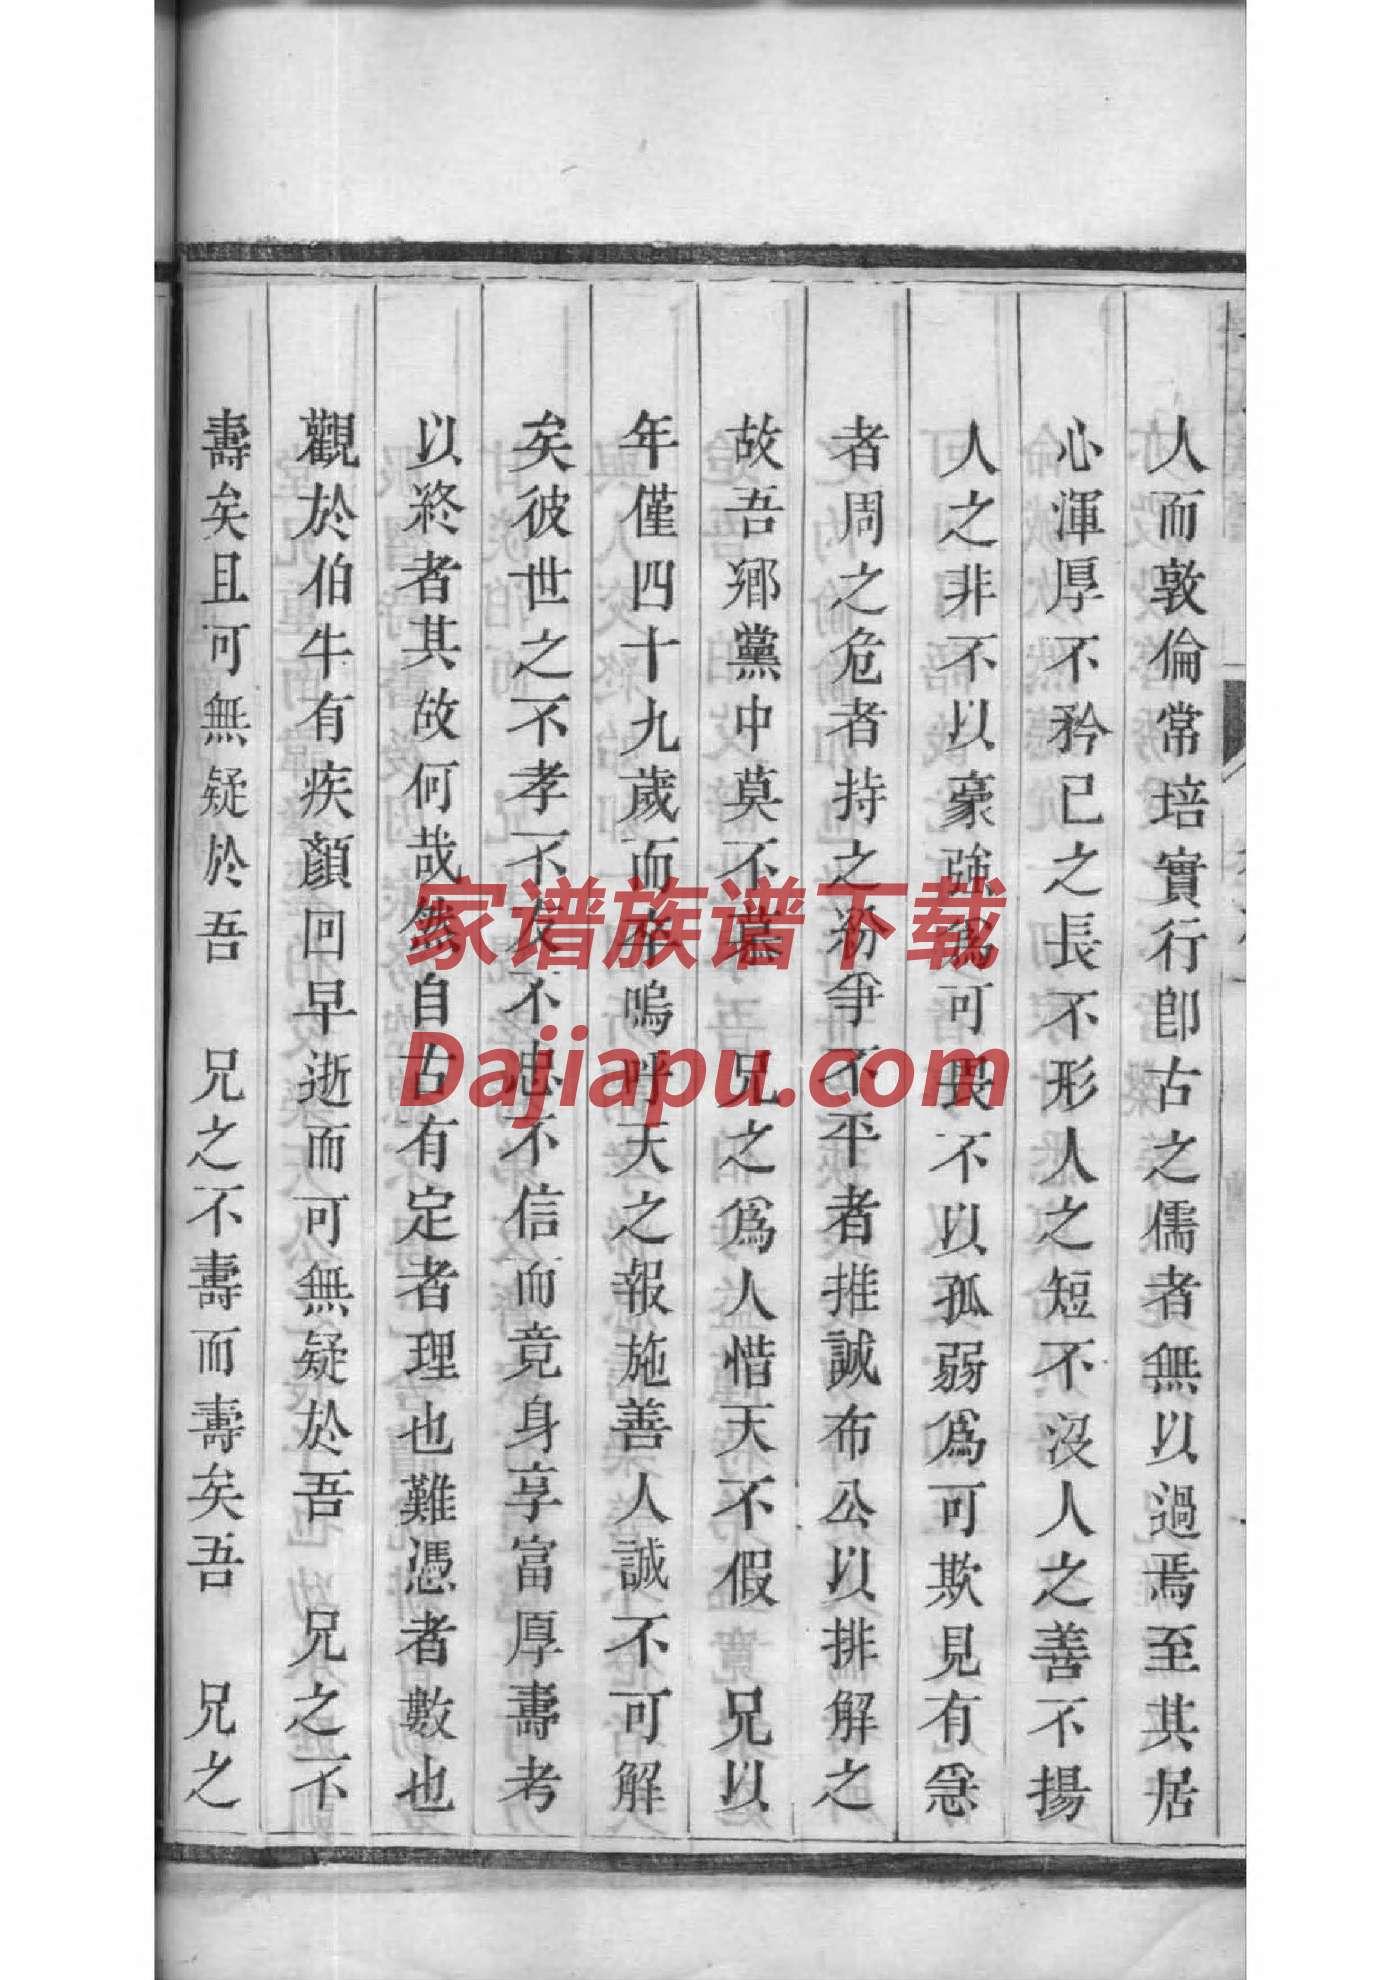 人而敦倫常培實行卽古之儒者無以過焉至其居
心渾厚不矜已之長不形人之短不沒人之善不揚
人之非不以豪強爲可畏不以孤弱爲可欺見有急
者周之危者持之紛爭不平者推誠布公以排解之
故吾鄉黨中莫不慕 兄之爲人惜天不假 兄以
年僅四十九歲而卒嗚呼天之報施善人誠不可解
矣彼世之不孝不友不忠不信而竟身享富厚壽考
以終者其故何哉自古有定者理也難憑者數也
觀於伯牛有疾顏回早逝而可無疑於吾 兄之不
壽矣且可無疑於吾 兄之不壽而壽矣吾 兄之
家谱族谱下载
Dajiapu.com